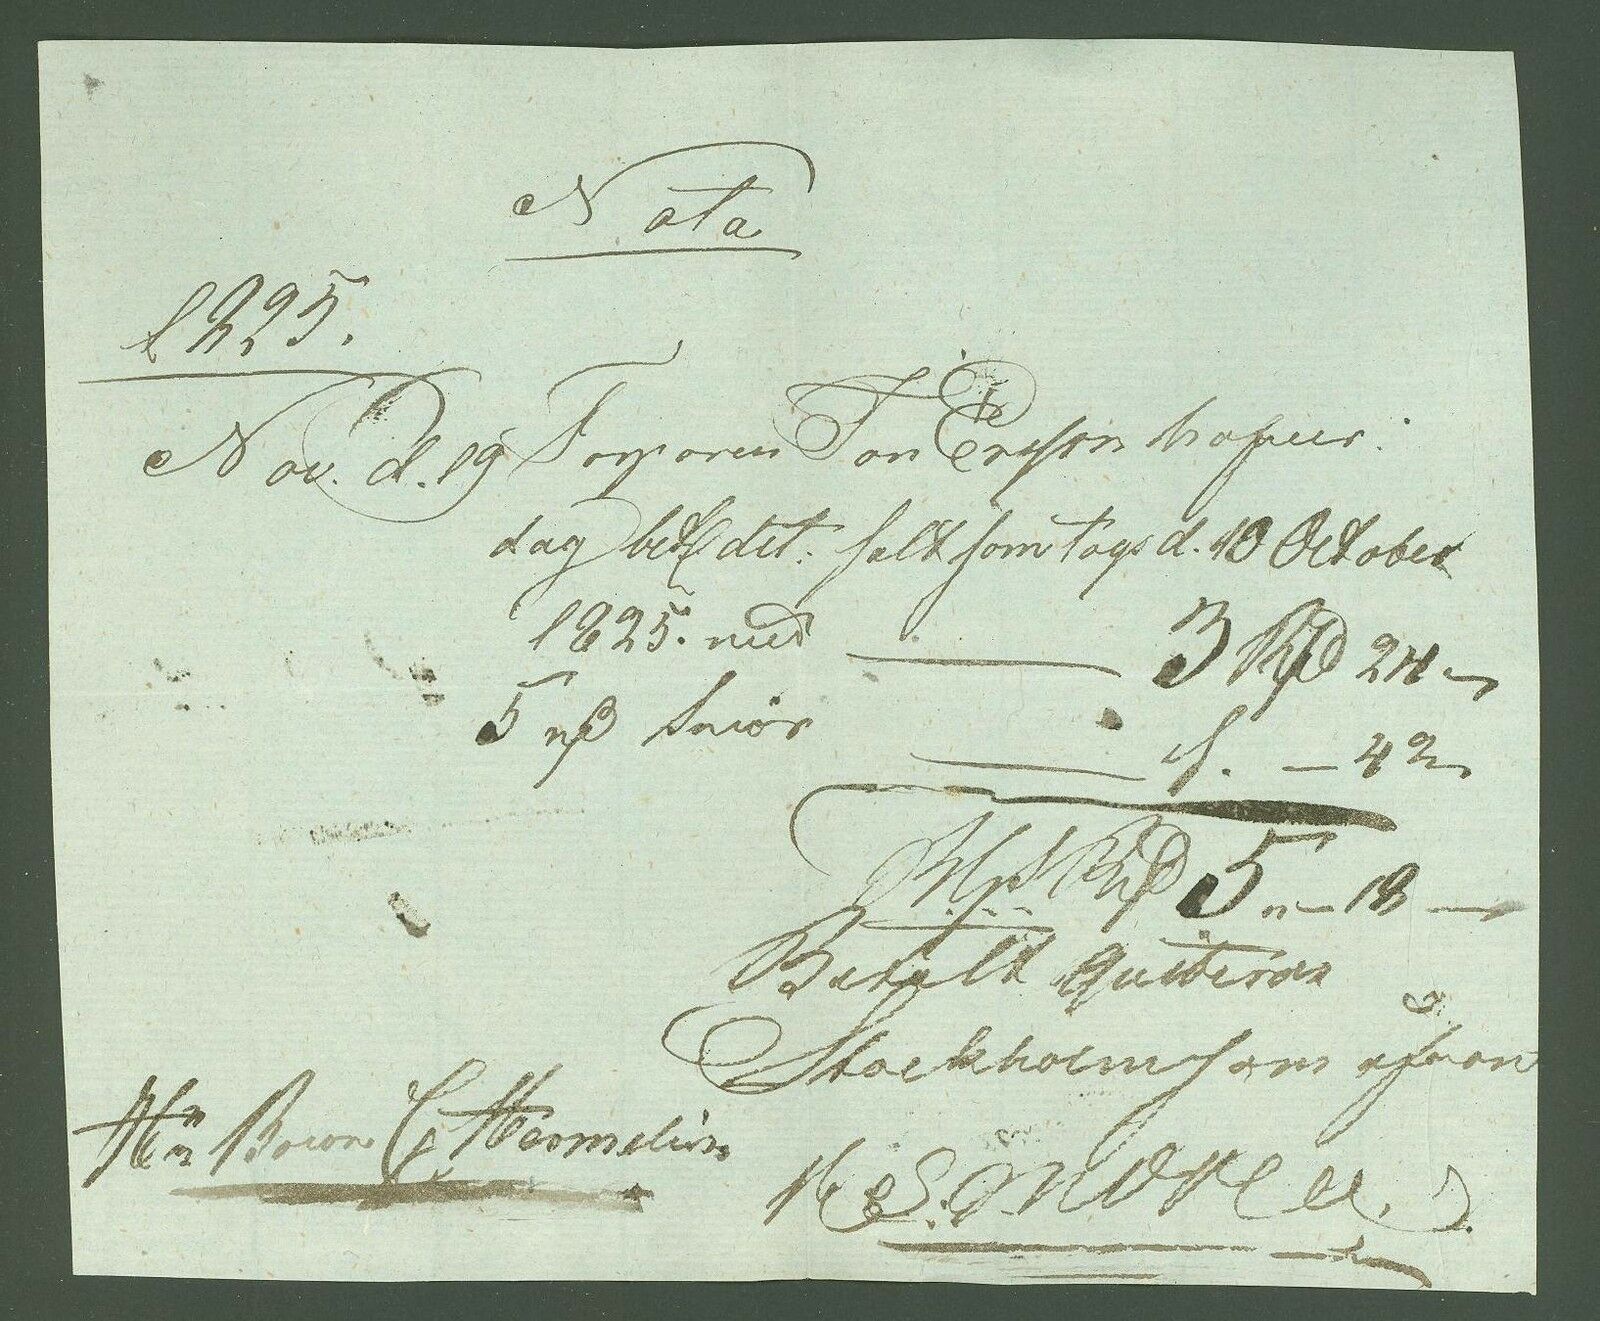 Nota
1825.
Nov. d. 19 Torparen Jan Ersson hafver
dag bet det: salt som togs d. 10 October
1825. med 3 Rd 24
5 Smör 1. – 42
Rd 5 – 18
Betalt quiteras
Stockholm som ofvan
Hrr Baron G Hermelin